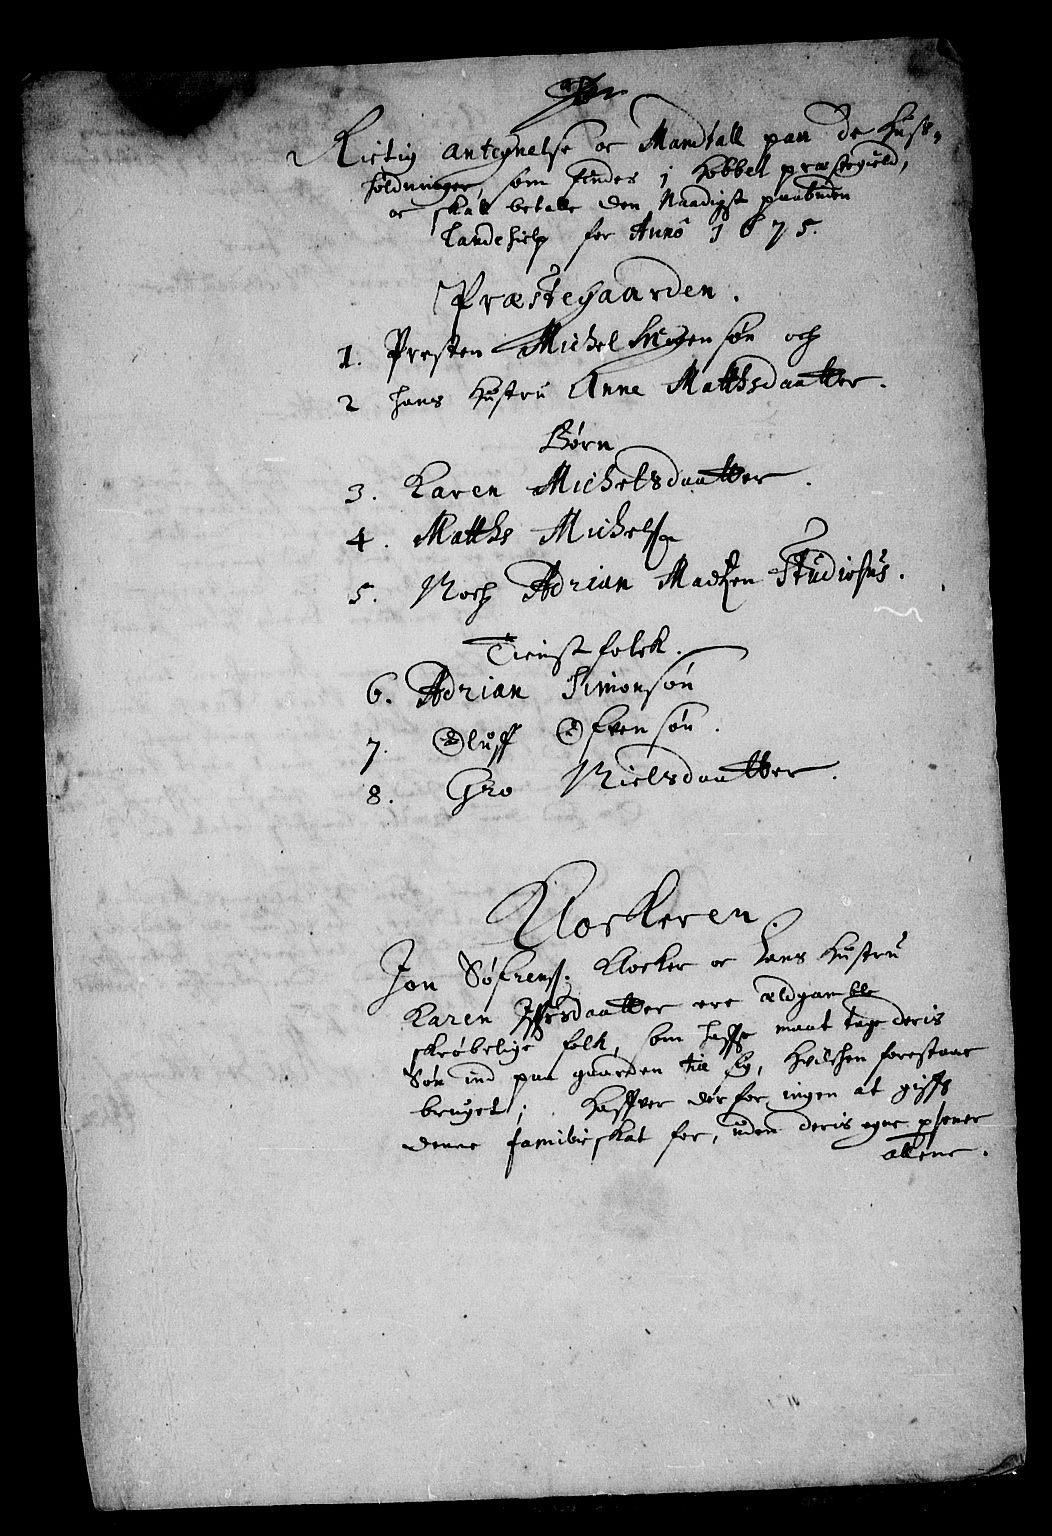 Rictig antegnelse oc Mandtall paa de Huus-
holdninger, som findes i Hobbel præstegield,
oc skall betalle den Naadigst paabuden
Landehielp for Anno 1675.
Præstegaarden.
1. Presten Michel søn och
2 hans Hustru Anne Matthsdaatter.
Børn
3. Karen Michelsdaatter.
4. Matths Michels:
5. Noch Adrian Madtzen Studiosus.
Tienst folck.
6. Adrian Simonsøn
7. Oluff Ofvensøn.
8. Gro Nielsdaatter.
Klockeren.
Jon Søfrens: Klocker oc hans Hustru
Karen Iffsdaatter ere ældgamble
skrøbelige folk, som haffr maat tage deris
Søn ind paa gaarden till sig, hvilchen forestaar
bruget; Haffver derfor ingen at giffs
denne familieskat for, uden deris egne p̄soner
allene.